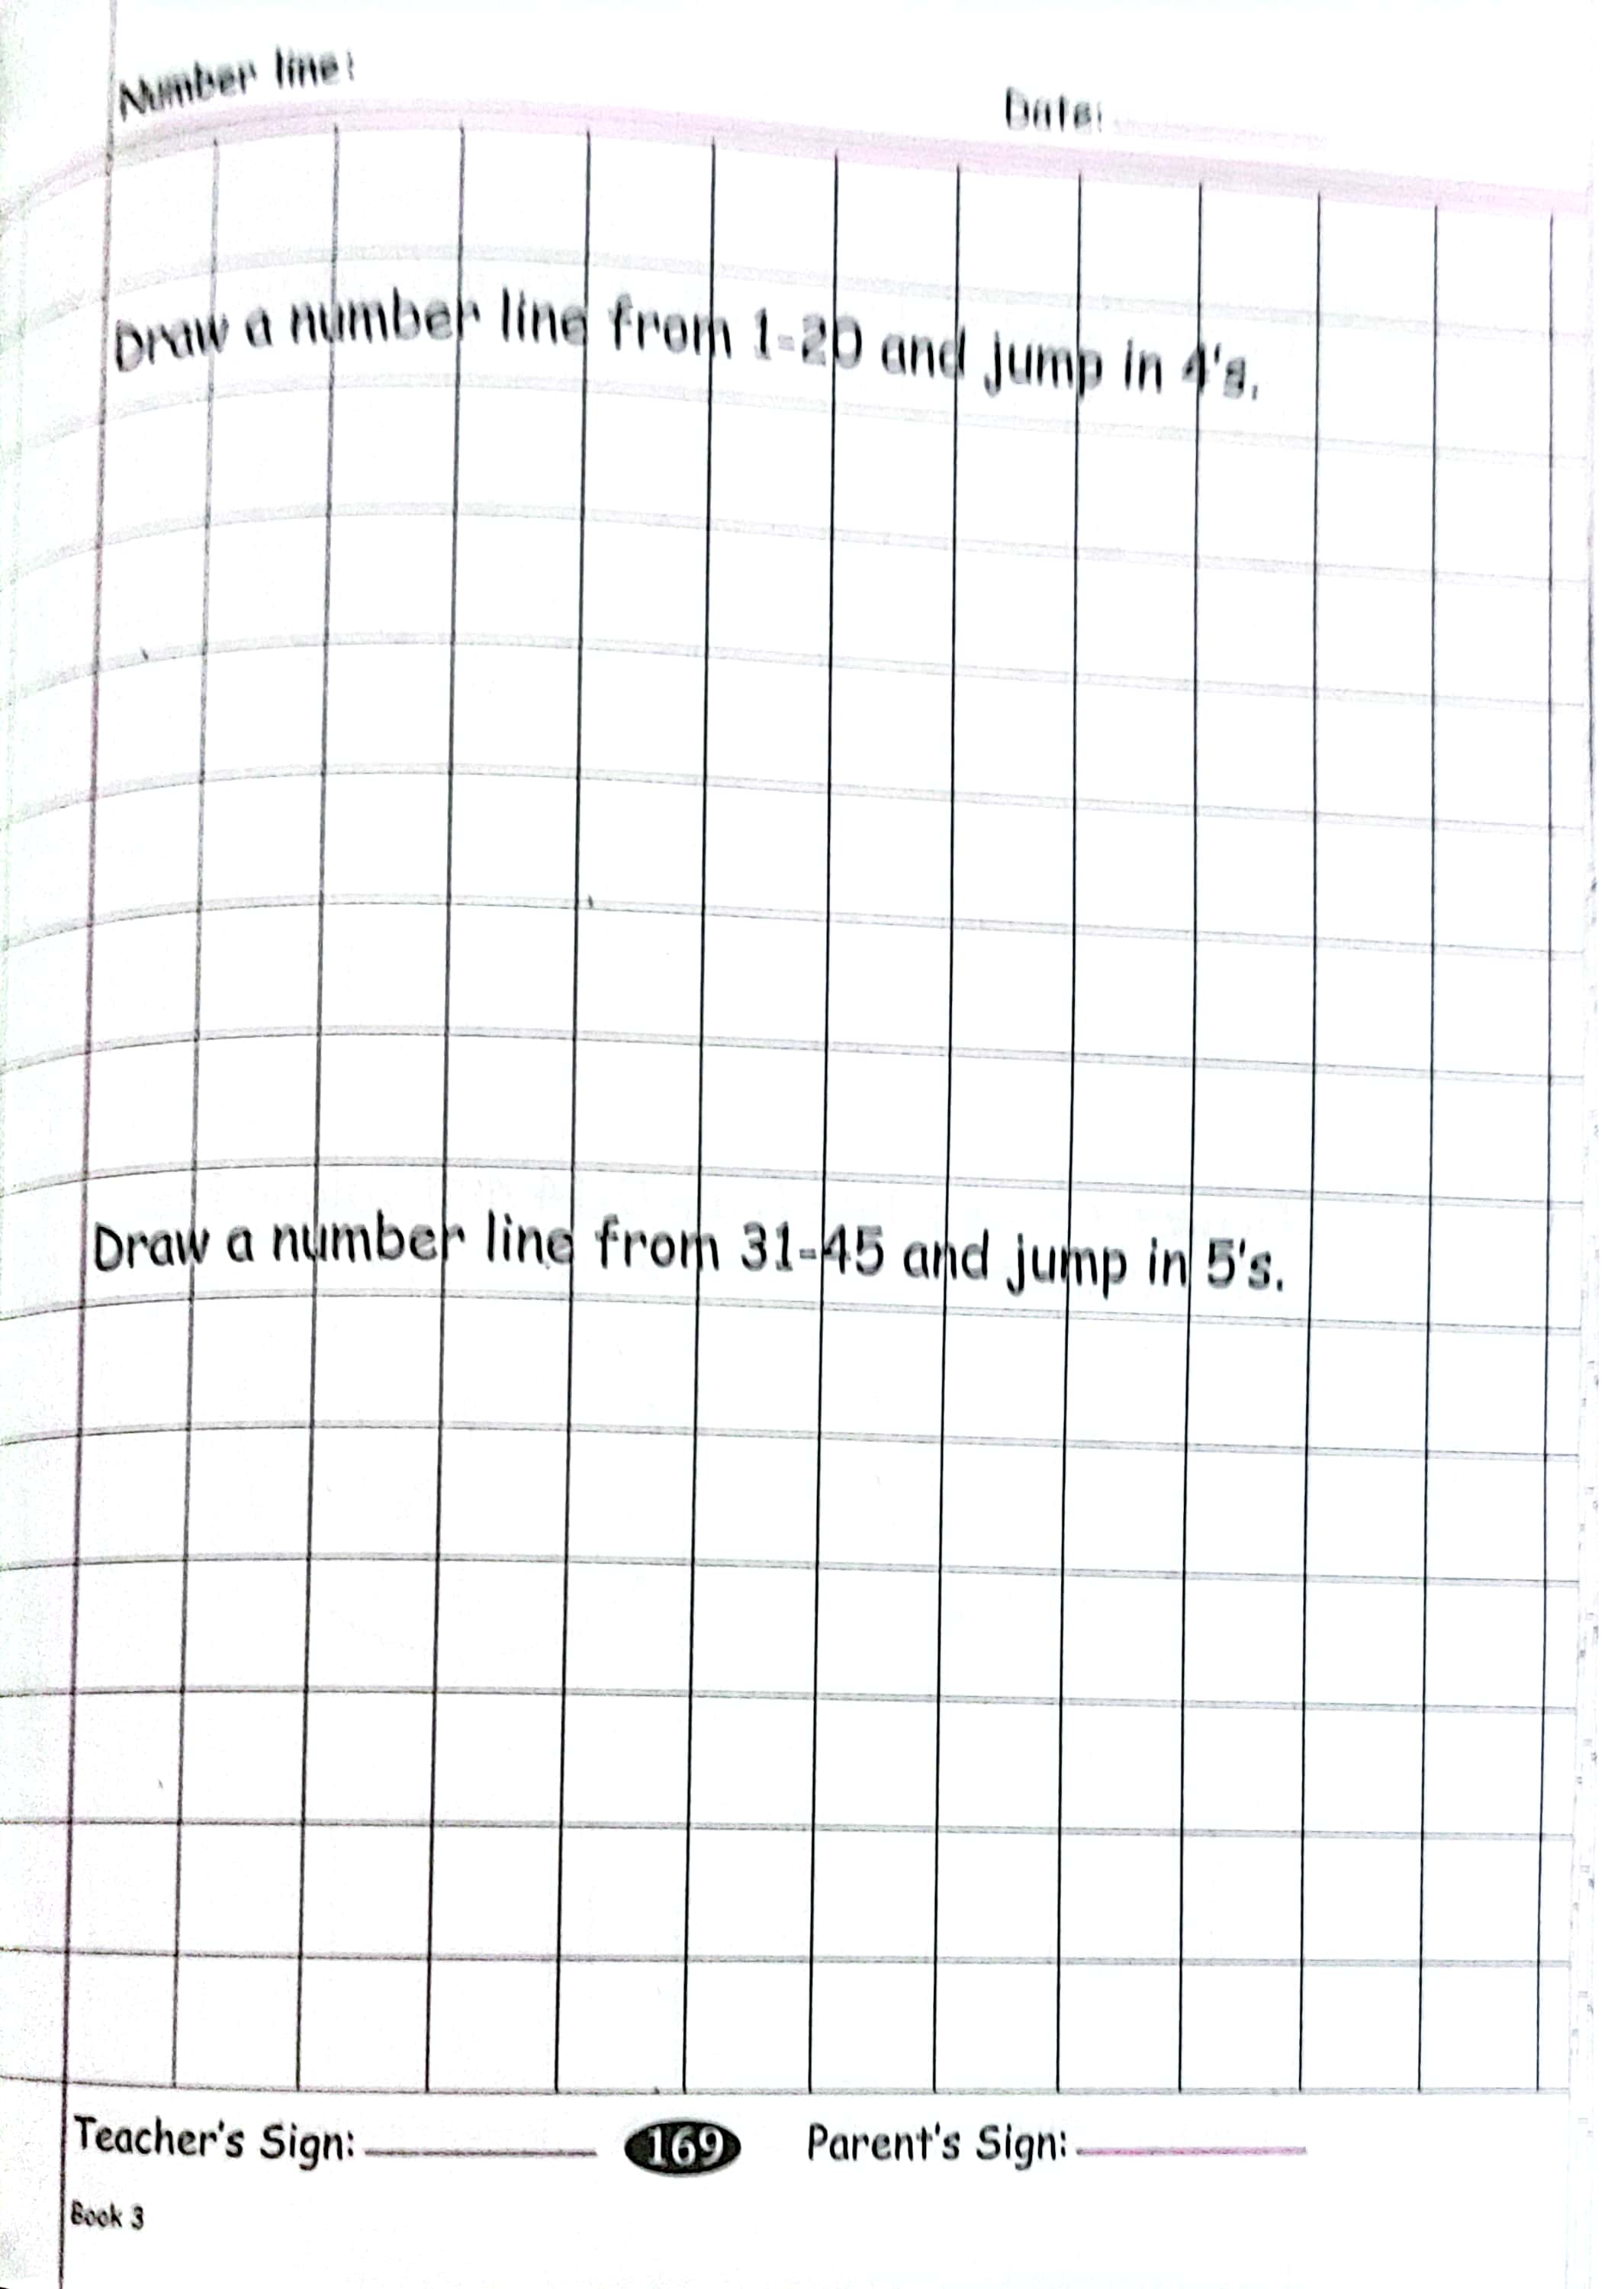 Number line:
Date:
Draw a number line from 1-20 and jump in 4's.
Draw a number line from 31-45 and jump in 5's.
Teacher's Sign: 169 Parent's Sign:
Book 3